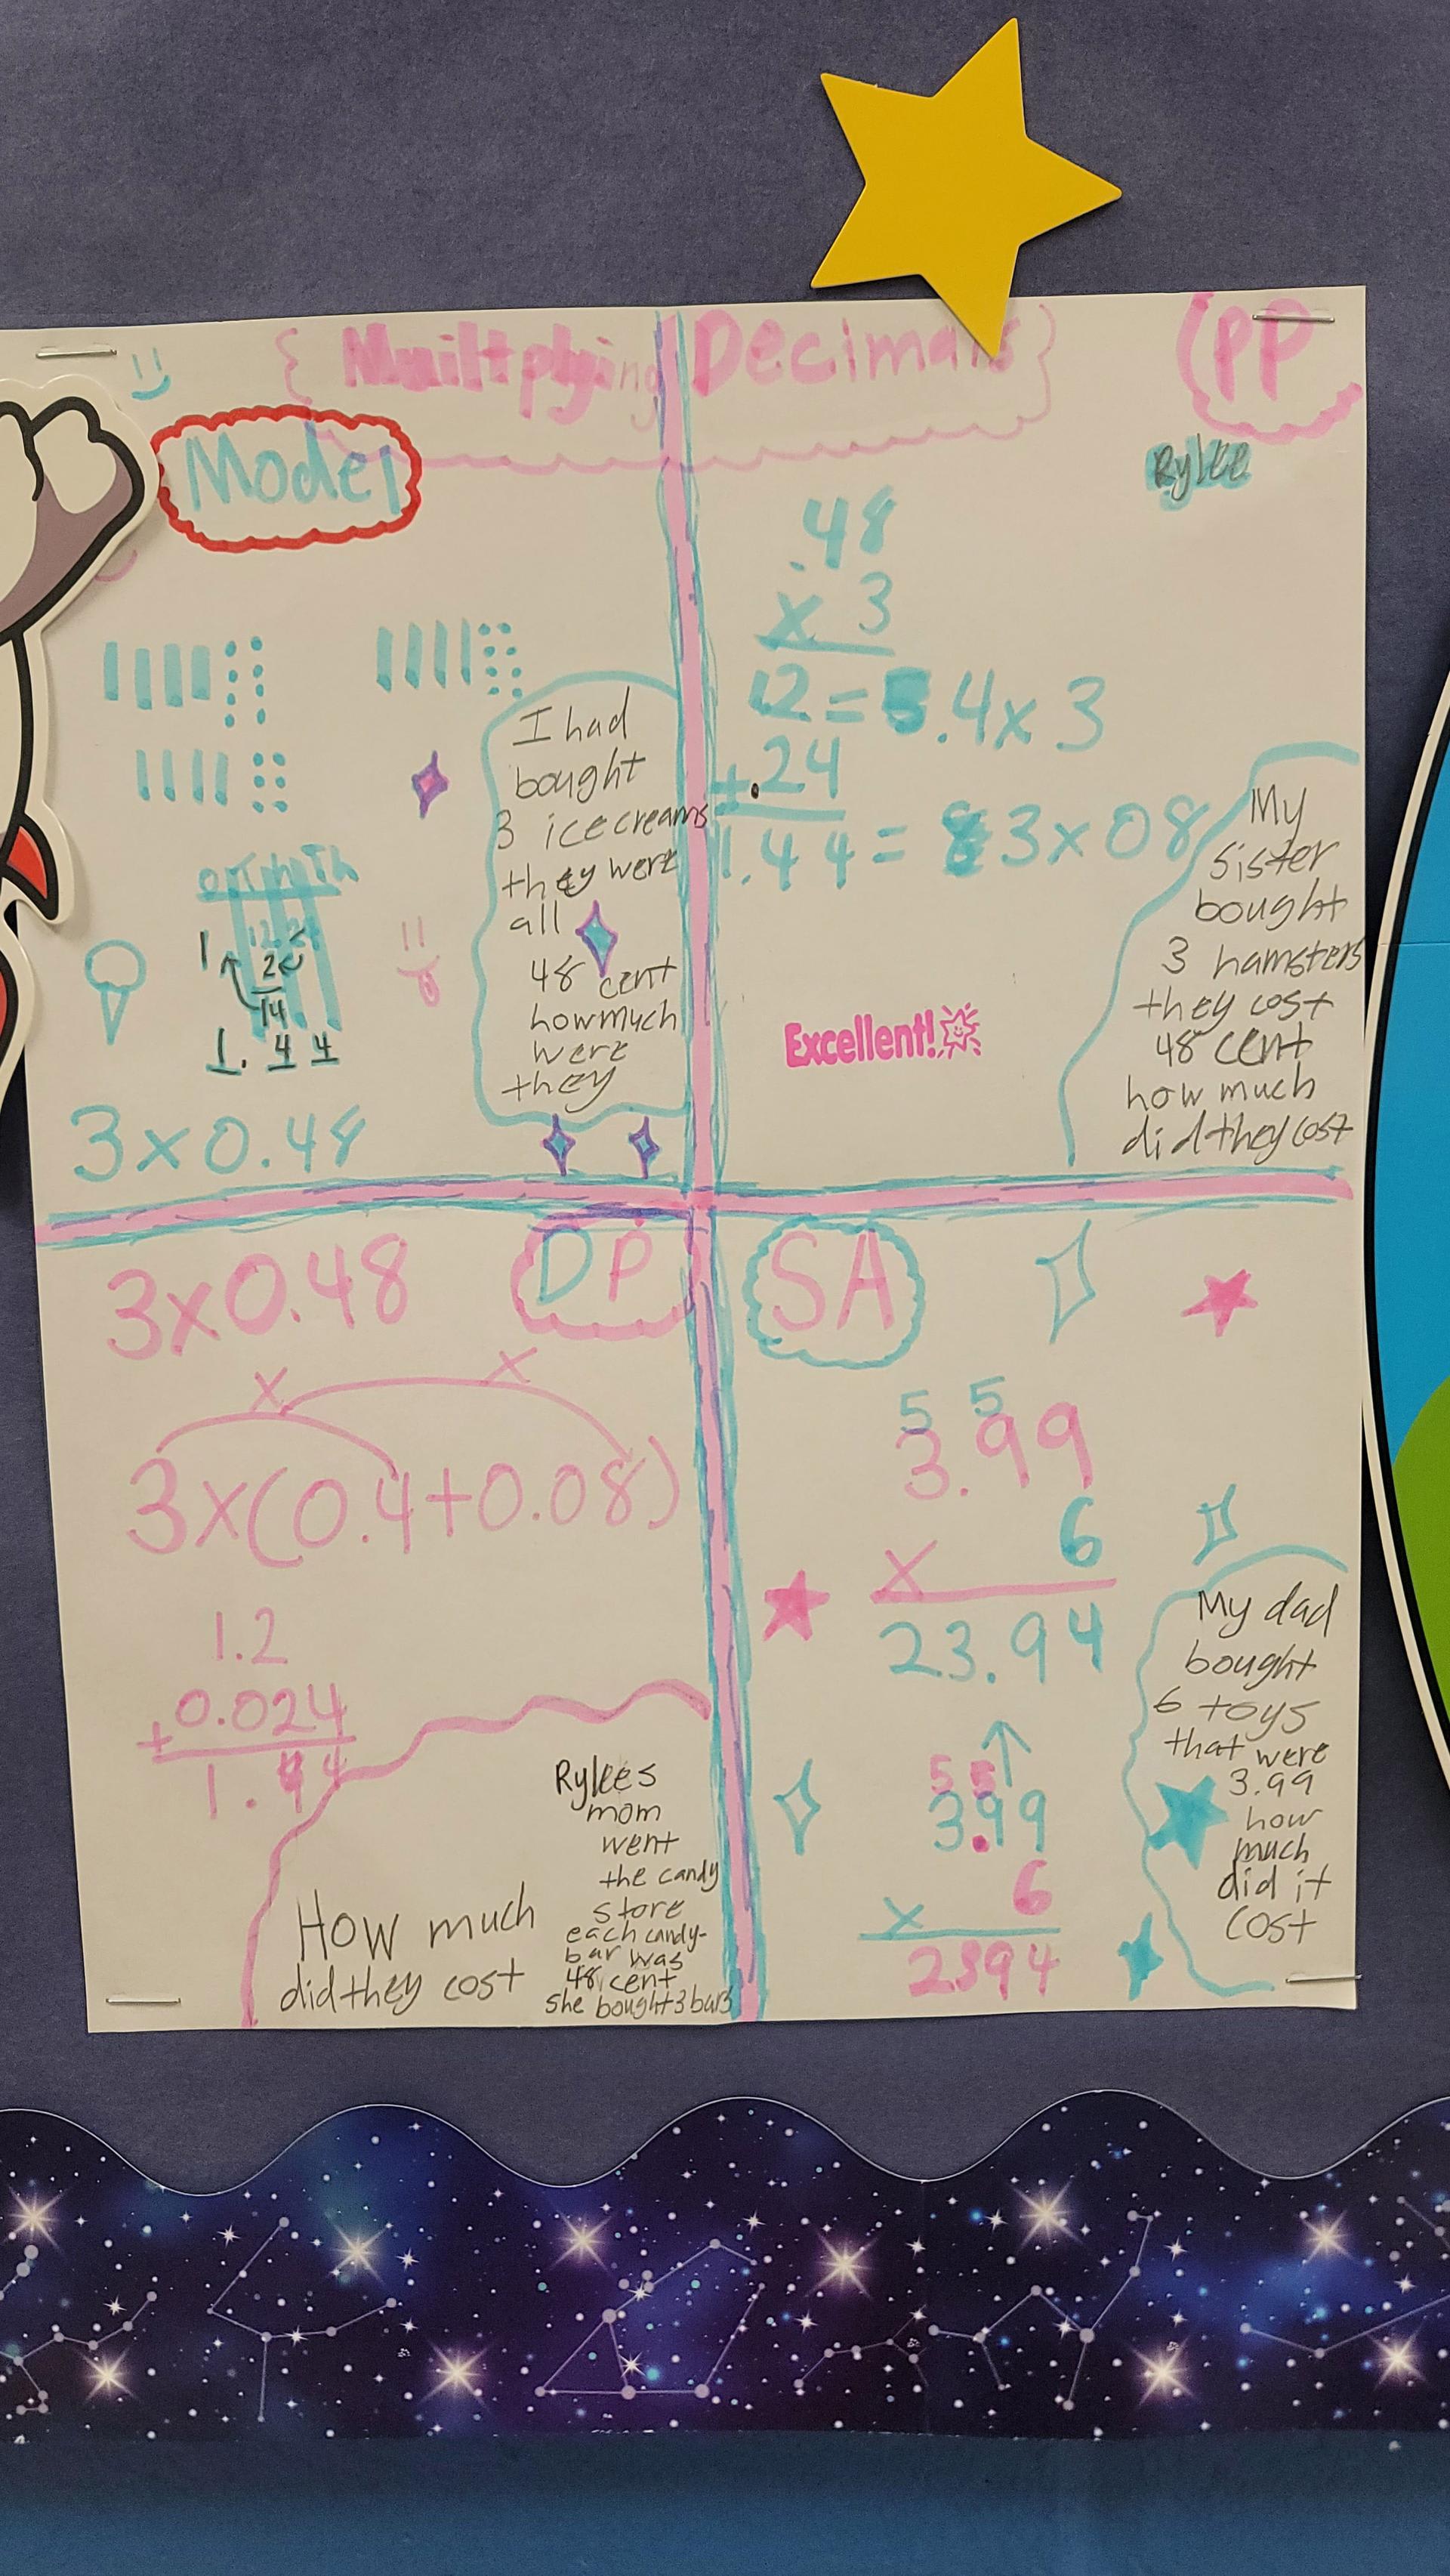 {Muiltplying Decimals}
(PP
Rylee
Model
I had
bought
3 icecreams
they were
all
48 cent
howmuch
were
they
1
2
14
1. 4 4
3x0.48
.48
x 3
12 = .4x 3
+.24
1.44 = 3x08
Excellent!
My
sister
bought
3 hamsters
they cost
48 cent
how much
did they cost
3x0.48
DP
x x
3x(0.4+0.08)
1.2
+0.024
1.44
Rylees
mom
went
the candy
store
each candy-
bar was
48 cent
she bought 3 bars
How much
did they cost
SA
5 5
3.99
x 6
23.94
5 5
3.99
x 6
2394
My dad
bought
6 toys
that were
3.99
how
much
did it
cost